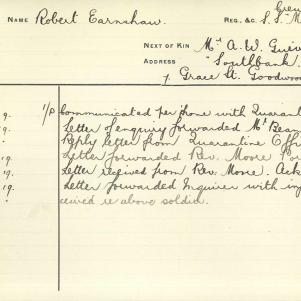 Crew
NAME Robert Earnshaw. REG. &C. S.S. "M
NEXT OF KIN Mr A. W. Grieve
ADDRESS "Southbank."
7, Grace St. Goodwood
9. 1/p Communicated per 'phone with Quarant
" Letter of enquiry forwarded Mr Bean
" Reply letter from Quarantine Offi
19. Letter forwarded Rev. Moore
19. Letter received from Rev. Moore. Ack
19. Letter forwarded Inquirer with in
" ceived re above soldier.